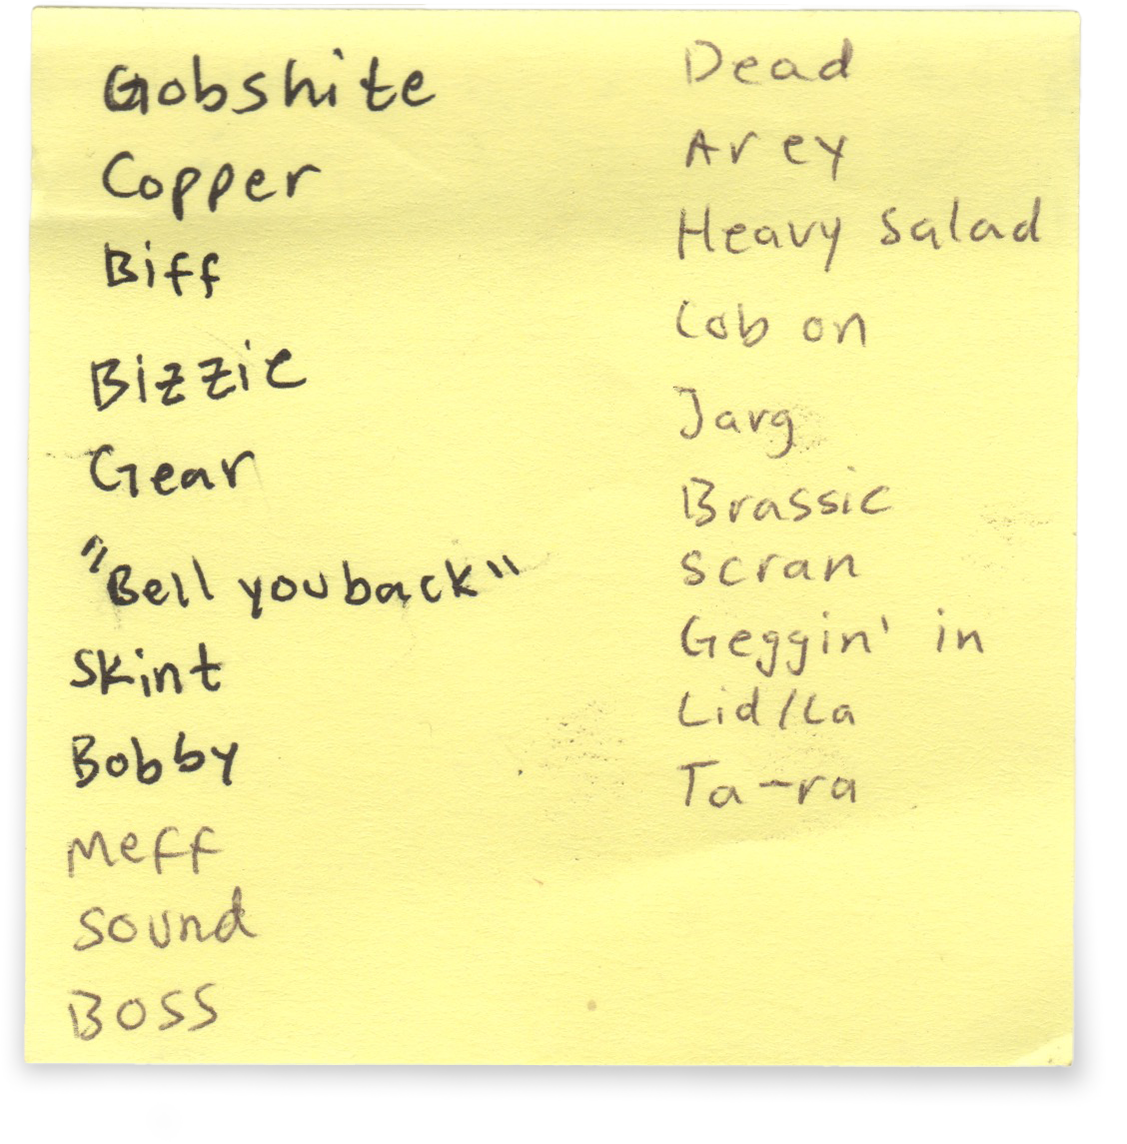 Gobshite
Copper
Biff
Bizzie
Gear
"Bell you back"
Skint
Bobby
Meff
Sound
Boss
Dead
Arey
Heavy Salad
Cob on
Jarg
Brassic
Scran
Geggin' in
Lid/La
Ta-ra